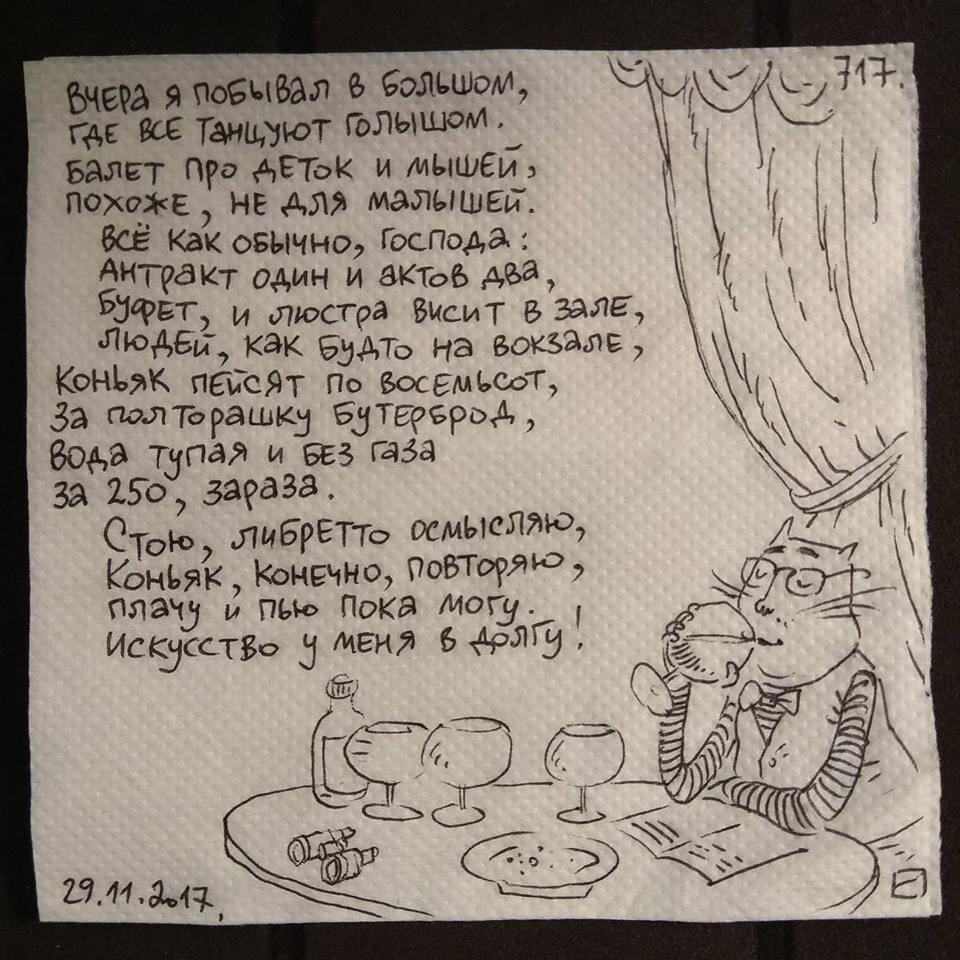 717.
Вчера я побывал в Большом,
где все танцуют голышом.
Балет про деток и мышей,
похоже, не для малышей.
Всё как обычно, господа:
антракт один и актов два,
буфет, и люстра висит в зале,
людей, как будто на вокзале,
коньяк пейсят по восемьсот,
за полторашку бутерброд,
вода тупая и без газа
за 250, зараза.
Стою, либретто осмысляю,
коньяк, конечно, повторяю,
плачу и пью пока могу.
Искусство у меня в долгу!
29.11.2017,